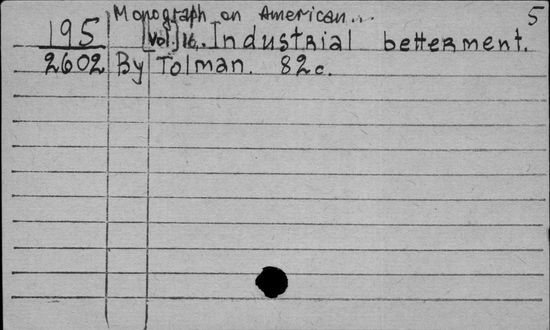 Monograph on American... 5
195 [Vol.] 16, Industrial betterment.
2602 By Tolman. 82c.